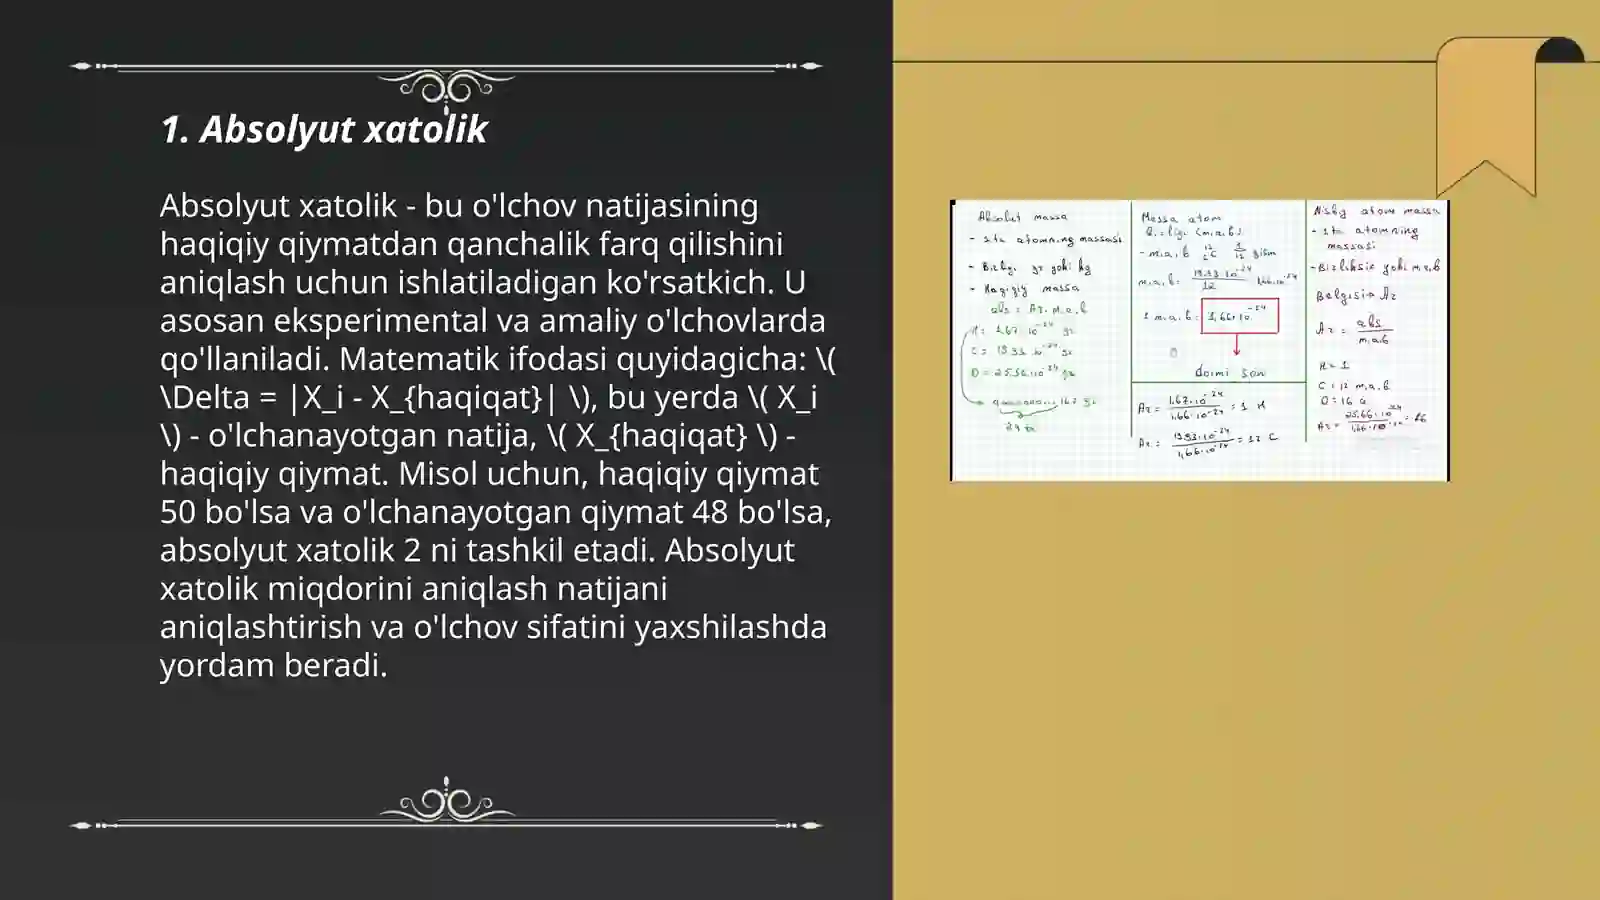 1. Absolyut xatolik
Absolyut xatolik - bu o'lchov natijasining
haqiqiy qiymatdan qanchalik farq qilishini
aniqlash uchun ishlatiladigan ko'rsatkich. U
asosan eksperimental va amaliy o'lchovlarda
qo'llaniladi. Matematik ifodasi quyidagicha: \(
\Delta = |X_i - X_{haqiqat}| \), bu yerda \( X_i
\) - o'lchanayotgan natija, \( X_{haqiqat} \) -
haqiqiy qiymat. Misol uchun, haqiqiy qiymat
50 bo'lsa va o'lchanayotgan qiymat 48 bo'lsa,
absolyut xatolik 2 ni tashkil etadi. Absolyut
xatolik miqdorini aniqlash natijani
aniqlashtirish va o'lchov sifatini yaxshilashda
yordam beradi.
Absolut massa
- 1 ta atomning massasi
- Haqiqiy massa
abs = Ar. m.a.b
Massa atom
- m.a.b
1 m.a.b = 1,66·10⁻²⁴
doimi son
Ar = 1,67·10⁻²⁴ / 1,66·10⁻²⁴ = 1 H
Ar = 19.93·10⁻²⁴ / 1,66·10⁻²⁴ = 12 C
Nisbiy atom massa
- 1 ta atomning
massasi
Belgisi Ar
Ar = abs / m.a.b
H = 1
C = 12 m.a.b
O = 16